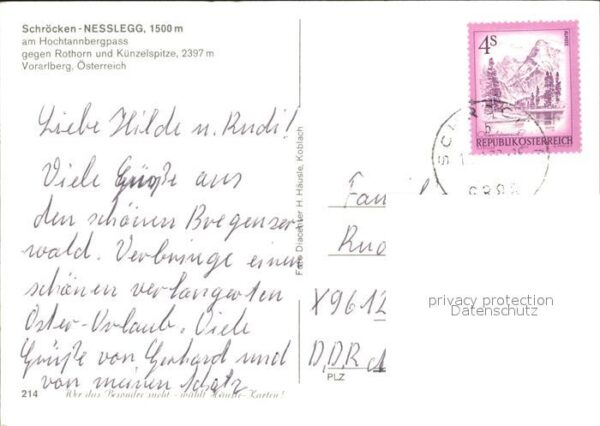 Schröcken - NESSLEGG, 1500 m
am Hochtannbergpass
gegen Rothorn und Künzelspitze, 2397 m
Vorarlberg, Österreich
Liebe Hilde u. Rudi!
Viele Grüße aus
den schönen Bregenzer
wald. Verbringe einen
schönen verlängerten
Oster-Urlaub. Viele
Grüße von Gerhard und
von meinen Schatz
214
Wer das Besondre sucht - wählt Häusle-Karten!
Foto Diacenter H. Häusle, Koblach
4S
REPUBLIK ÖSTERREICH
Fam
Rud
X9612
DDR
PLZ
privacy protection
Datenschutz